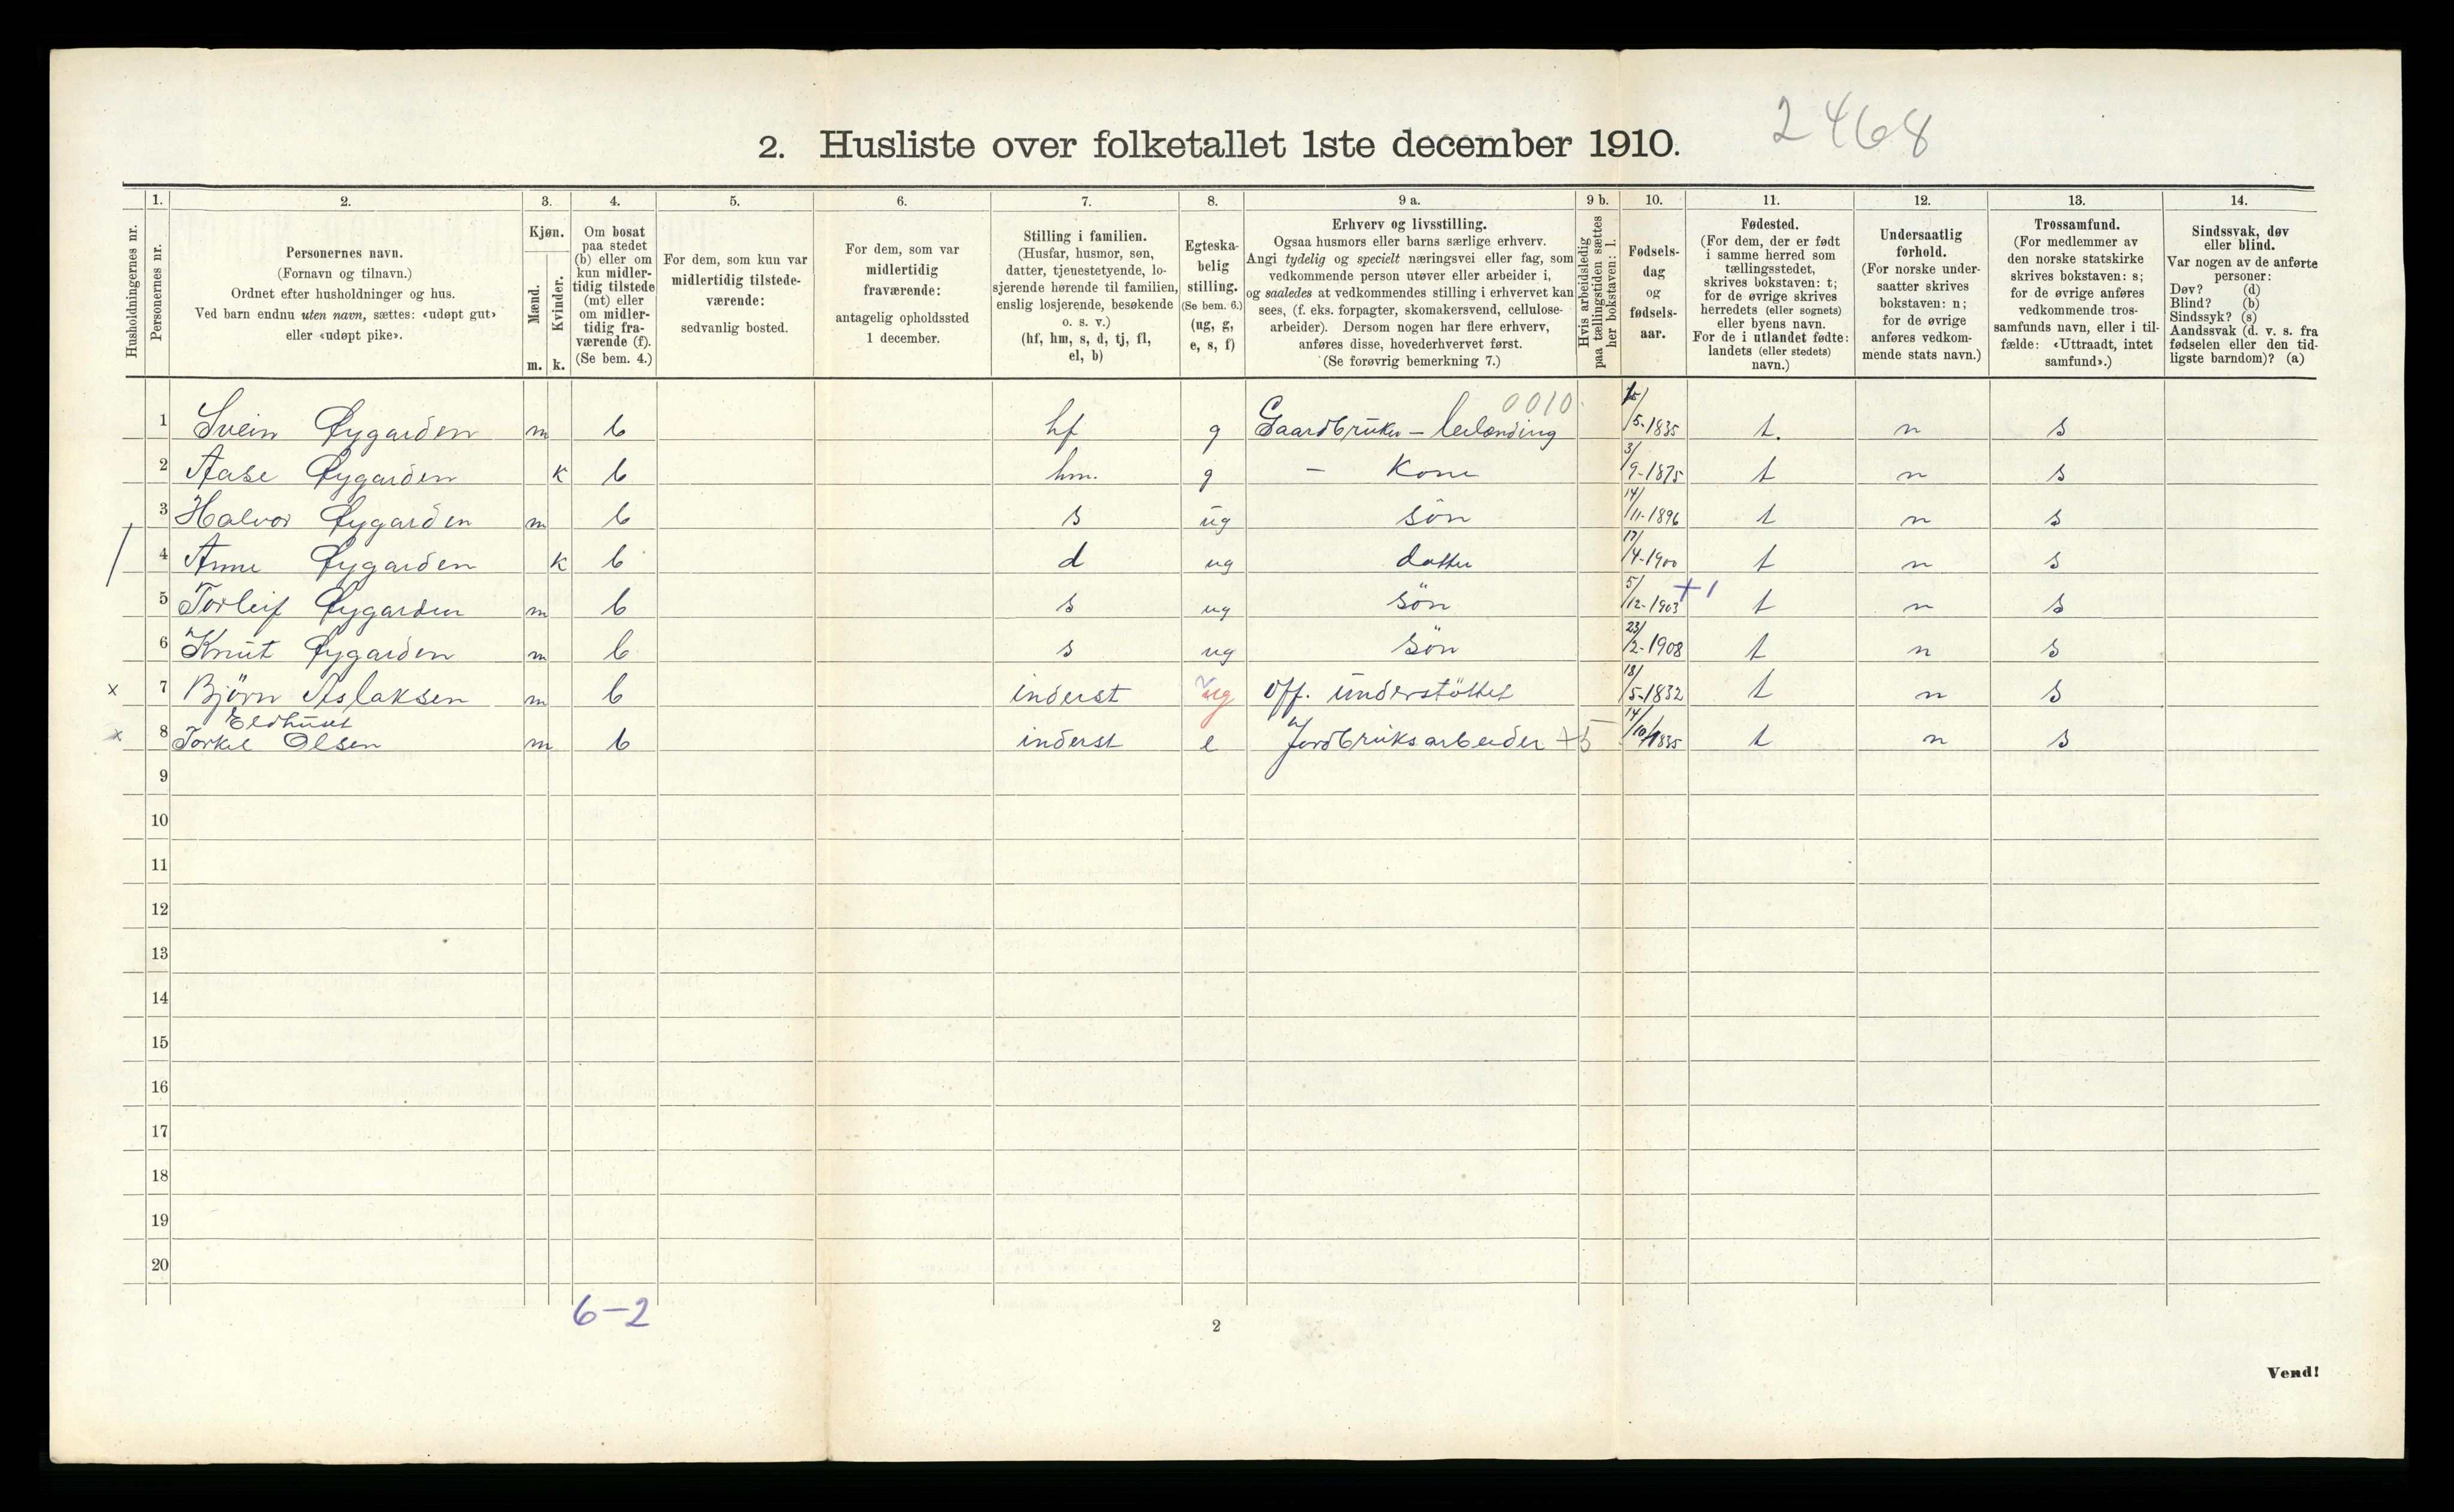 2468
2. Husliste over folketallet 1ste december 1910.
Husholdningernes nr.
1.
Personernes nr.
2.
Personernes navn.
(Fornavn og tilnavn.)
Ordnet efter husholdninger og hus.
Ved barn endnu uten navn, sættes: «udøpt gut»
eller «udøpt pike».
3.
Kjøn.
Mænd.
Kvinder.
m. k.
4.
Om bosat
paa stedet
(b) eller om
kun midler-
tidig tilstede
(mt) eller
om midler-
tidig fra-
værende (f).
(Se bem. 4.)
5.
For dem, som kun var
midlertidig tilstede-
værende:
sedvanlig bosted.
6.
For dem, som var
midlertidig
fraværende:
antagelig opholdssted
1 december.
7.
Stilling i familien.
(Husfar, husmor, søn,
datter, tjenestetyende, lo-
sjerende hørende til familien,
enslig losjerende, besøkende
o. s. v.)
(hf, hm, s, d, tj, fl,
el, b)
8.
Egteska-
belig
stilling.
(Se bem. 6.)
(ug, g,
e, s, f)
9 a.
Erhverv og livsstilling.
Ogsaa husmors eller barns særlige erhverv.
Angi tydelig og specielt næringsvei eller fag, som
vedkommende person utøver eller arbeider i,
og saaledes at vedkommendes stilling i erhvervet kan
sees, (f. eks. forpagter, skomakersvend, cellulose-
arbeider). Dersom nogen har flere erhverv,
anføres disse, hovederhvervet først.
(Se forøvrig bemerkning 7.)
9 b.
Hvis arbeidsledig
paa tællingstiden sættes
her bokstaven: l.
10.
Fødsels-
dag
og
fødsels-
aar.
11.
Fødested.
(For dem, der er født
i samme herred som
tællingsstedet,
skrives bokstaven: t;
for de øvrige skrives
herredets (eller sognets)
eller byens navn.
For de i utlandet fødte:
landets (eller stedets)
navn.)
12.
Undersaatlig
forhold.
(For norske under-
saatter skrives
bokstaven: n;
for de øvrige
anføres vedkom-
mende stats navn.)
13.
Trossamfund.
(For medlemmer av
den norske statskirke
skrives bokstaven: s;
for de øvrige anføres
vedkommende tros-
samfunds navn, eller i til-
fælde: «Uttraadt, intet
samfund».)
14.
Sindssvak, døv
eller blind.
Var nogen av de anførte
personer:
Døv? (d)
Blind? (b)
Sindssyk? (s)
Aandssvak (d. v. s. fra
fødselen eller den tid-
ligste barndom)? (a)
0010
1 Svein Øygarden m b hf g Gaardbruker – leilænding /5-1835 t. n s
2 Aase Øygarden k b hm. g – Kone 3/9-1875 t n s
3 Halvor Øygarden m b s ug sön 14/11-1896 t n s
4 Anne Øygarden k b d ug datter 17/4-1900 t n s
5 Torleif Øygarden m b s ug sön 5/12-1903 +1 t n s
6 Knut Øygarden m b s ug sön 23/2-1908 t n s
x 7 Björn Aslaksen m b inderst ug off. understöttet 18/5-1832 t n s
Eldhuset
x 8 Torkel Olsen m b inderst e Jordbruksarbeider +5 14/10 1835 t n s
9
10
11
12
13
14
15
16
17
18
19
20
6-2
2
Vend!